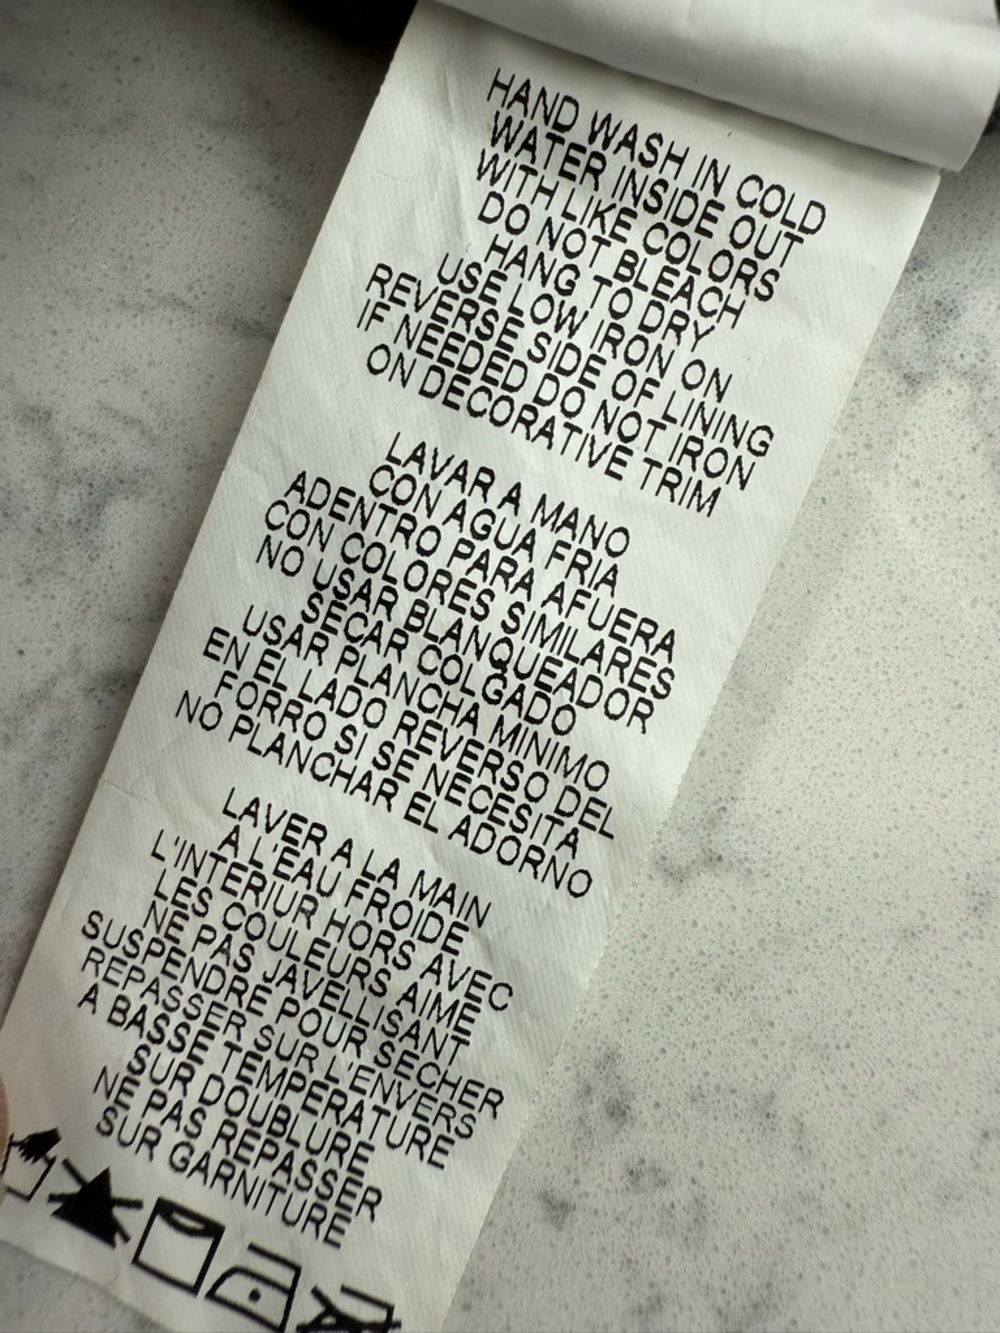 HAND WASH IN COLD
WATER INSIDE OUT
WITH LIKE COLORS
DO NOT BLEACH
HANG TO DRY
USE LOW IRON ON
REVERSE SIDE OF LINING
IF NEEDED DO NOT IRON
ON DECORATIVE TRIM
LAVAR A MANO
CON AGUA FRIA
ADENTRO PARA AFUERA
CON COLORES SIMILARES
NO USAR BLANQUEADOR
SECAR COLGADO
USAR PLANCHA MINIMO
EN EL LADO REVERSO DEL
FORRO SI SE NECESITA
NO PLANCHAR EL ADORNO
LAVER A LA MAIN
A L'EAU FROIDE
L'INTERIUR HORS AVEC
LES COULEURS AIME
NE PAS JAVELLISANT
SUSPENDRE POUR SECHER
REPASSER SUR L'ENVERS
A BASSE TEMPERATURE
SUR DOUBLURE
NE PAS REPASSER
SUR GARNITURE